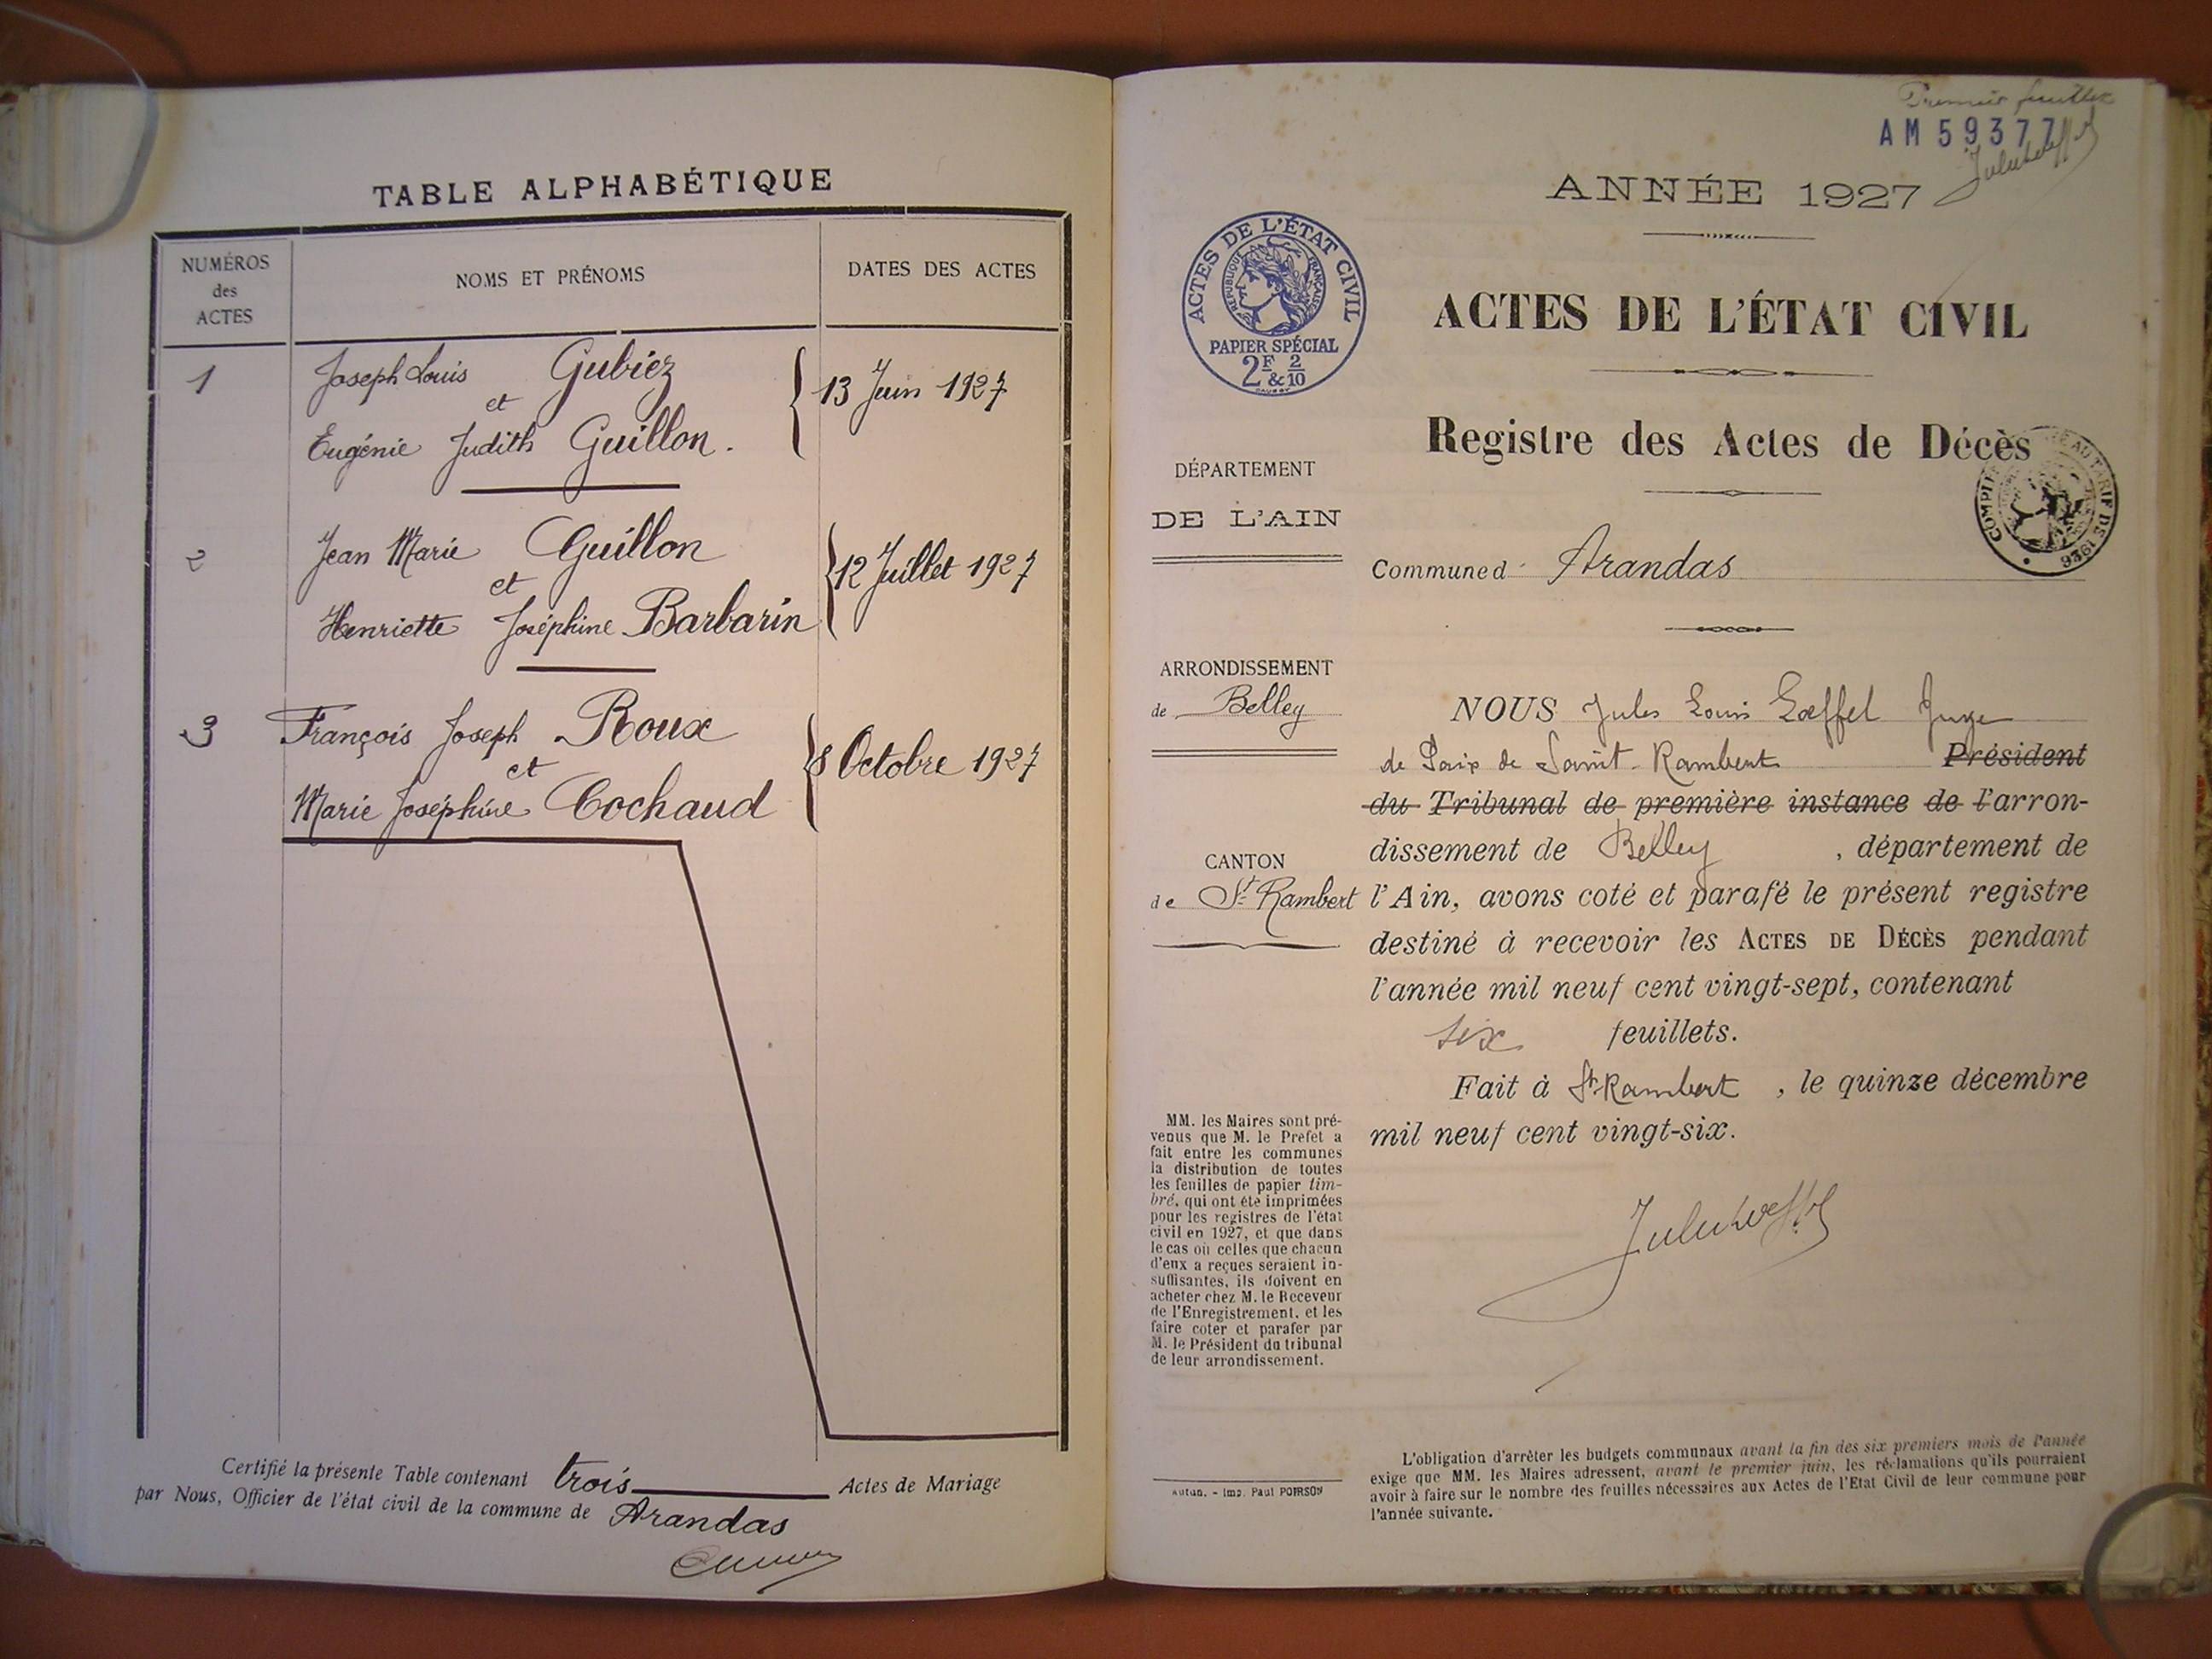 TABLE ALPHABÉTIQUE
NUMÉROS
des
ACTES
NOMS ET PRÉNOMS
DATES DES ACTES
1
Joseph Louis Gubiez
et
Eugénie Judith Guillon.
13 Juin 1927
2
Jean Marie Guillon
et
Henriette Joséphine Barbarin
12 Juillet 1927
3
François Joseph Roux
et
Marie Joséphine Cochaud
8 Octobre 1927
Certifié la présente Table contenant trois Actes de Mariage
par Nous, Officier de l'état civil de la commune de Arandas
Premier feuillet
AM 59377
ANNÉE 1927
ACTES DE L'ÉTAT CIVIL
RÉPUBLIQUE FRANÇAISE
PAPIER SPÉCIAL
2F 2/10
&
ACTES DE L'ÉTAT CIVIL
Registre des Actes de Décès
TARIF DE 1926
DÉPARTEMENT
DE L'AIN
Commune d Arandas
ARRONDISSEMENT
de Belley
CANTON
de St Rambert
NOUS Jules Louis Lœffel Juge
de Paix de Saint-Rambert Président
du Tribunal de première instance de l'arron-
dissement de Belley, département de
l'Ain, avons coté et parafé le présent registre
destiné à recevoir les ACTES DE DÉCÈS pendant
l'année mil neuf cent vingt-sept, contenant
six feuillets.
Fait à St-Rambert, le quinze décembre
mil neuf cent vingt-six.
MM. les Maires sont pré-
venus que M. le Préfet a
fait entre les communes
la distribution de toutes
les feuilles de papier tim-
bré, qui ont été imprimées
pour les registres de l'état
civil en 1927, et que dans
le cas où celles que chacun
d'eux a reçues seraient in-
suffisantes, ils doivent en
acheter chez M. le Receveur
de l'Enregistrement, et les
faire coter et parafer par
M. le Président du tribunal
de leur arrondissement.
Autun. - Imp. Paul POIRSON
L'obligation d'arrêter les budgets communaux avant la fin des six premiers mois de l'année
exige que MM. les Maires adressent, avant le premier juin, les réclamations qu'ils pourraient
avoir à faire sur le nombre des feuilles nécessaires aux Actes de l'Etat Civil de leur commune pour
l'année suivante.